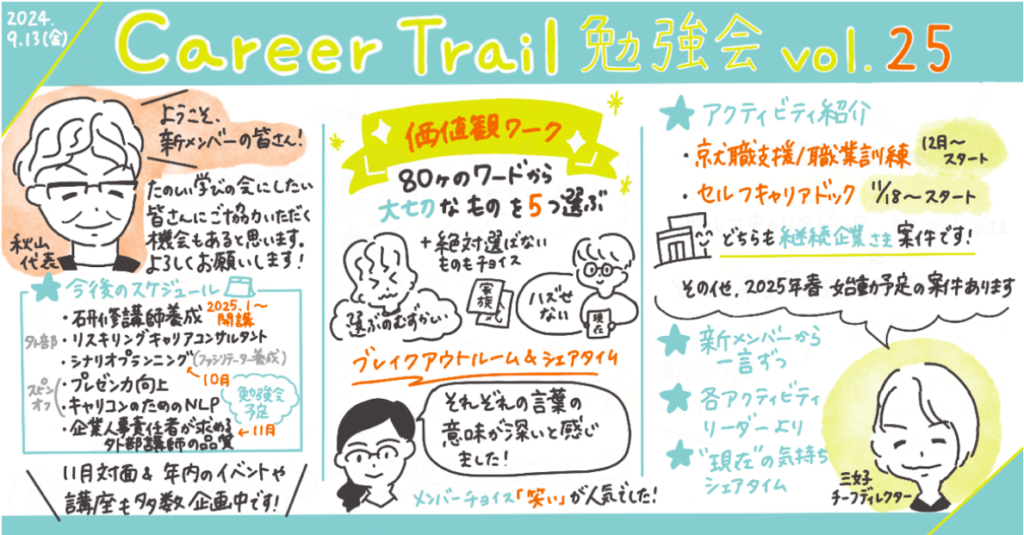 2024.
9.13(金)
Career Trail 勉強会 vol. 25
ようこそ、
新メンバーの皆さん!
たのしい学びの会にしたい
皆さんにご協力いただく
機会もあると思います。
よろしくお願いします!
秋山
代表
今後のスケジュール
・研修講師養成
2025.1〜
開講
外部
・リスキリングキャリアコンサルタント
・シナリオプランニング(ファシリテーター養成)
10月
スピンオフ
・プレゼン力向上
・キャリコンのためのNLP
勉強会
予定
・企業人事責任者が求める
外部講師の品質
11月
11月対面& 年内のイベントや
講座も多数企画中です!
価値観ワーク
80ヶのワードから
大切なものを5つ選ぶ
+絶対選ばない
ものもチョイス
選ぶのむずかしい
家族
ハズせ
ない
現在
ブレイクアウトルーム&シェアタイム
それぞれの言葉の
意味が深いと感じ
ました!
メンバーチョイス「笑い」が人気でした!
アクティビティ紹介
・就職支援/職業訓練
12月〜
スタート
・セルフキャリアドック
11/18〜スタート
どちらも継続企業さま案件です!
その他、2025年春 始動予定の案件あります
新メンバーから
一言ずつ
各アクティビティ
リーダーより
"現在"の気持ち
シェアタイム
三好
チーフディレクター